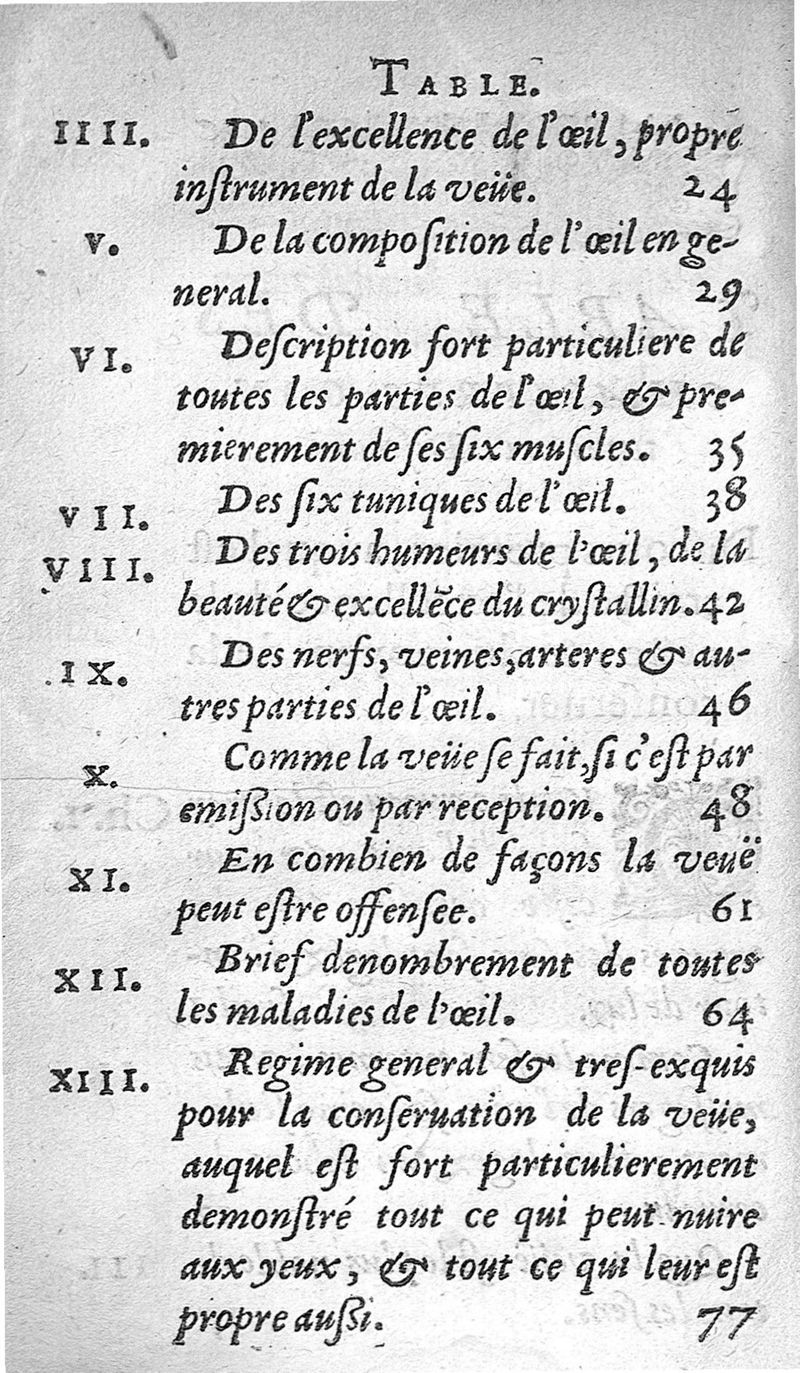 TABLE.
IIII. De l'excellence de l'œil, propre
inſtrument de la veüe. 24
V. De la compoſition de l'œil en ge-
neral. 29
VI. Deſcription fort particuliere de
toutes les parties de l'œil, & pre-
mierement de ſes ſix muſcles. 35
VII. Des ſix tuniques de l'œil. 38
VIII. Des trois humeurs de l'œil, de la
beauté & excellẽce du cryſtallin. 42
IX. Des nerfs, veines, arteres & au-
tres parties de l'œil. 46
X. Comme la veüe ſe fait, ſi c'eſt par
emiſſion ou par reception. 48
XI. En combien de façons la veuë
peut eſtre offenſee. 61
XII. Brief denombrement de toutes
les maladies de l'œil. 64
XIII. Regime general & treſ-exquis
pour la conſeruation de la veüe,
auquel eſt fort particulierement
demonſtré tout ce qui peut nuire
aux yeux, & tout ce qui leur eſt
propre auſſi. 77